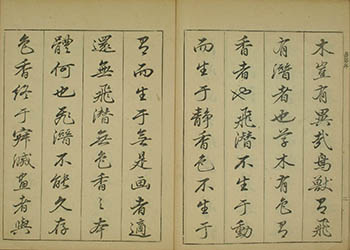 木豈有異哉鳥獸有飛
有潛者也草木有色有
香者也飛潛不生于動
而生于靜香色不生于
有而生于無是画者適
還無飛潛無色香之本
體何也飛潛不能久存
色香終于寂滅畫者與